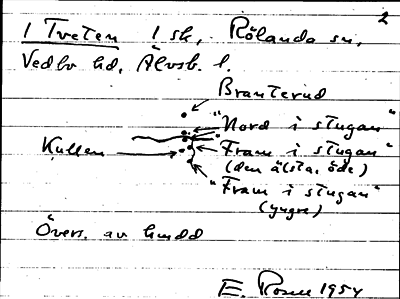 2
1 Tveten 1 sk, Rölanda sn,
Vedbo hd, Älvsb. l.
Branterud
"Nord i stugan"
Kullen
Fram i stugan"
(den älsta, öde)
"Fram i stugan"
(yngre)
Övers. av hmdd
E. Rosen 1954